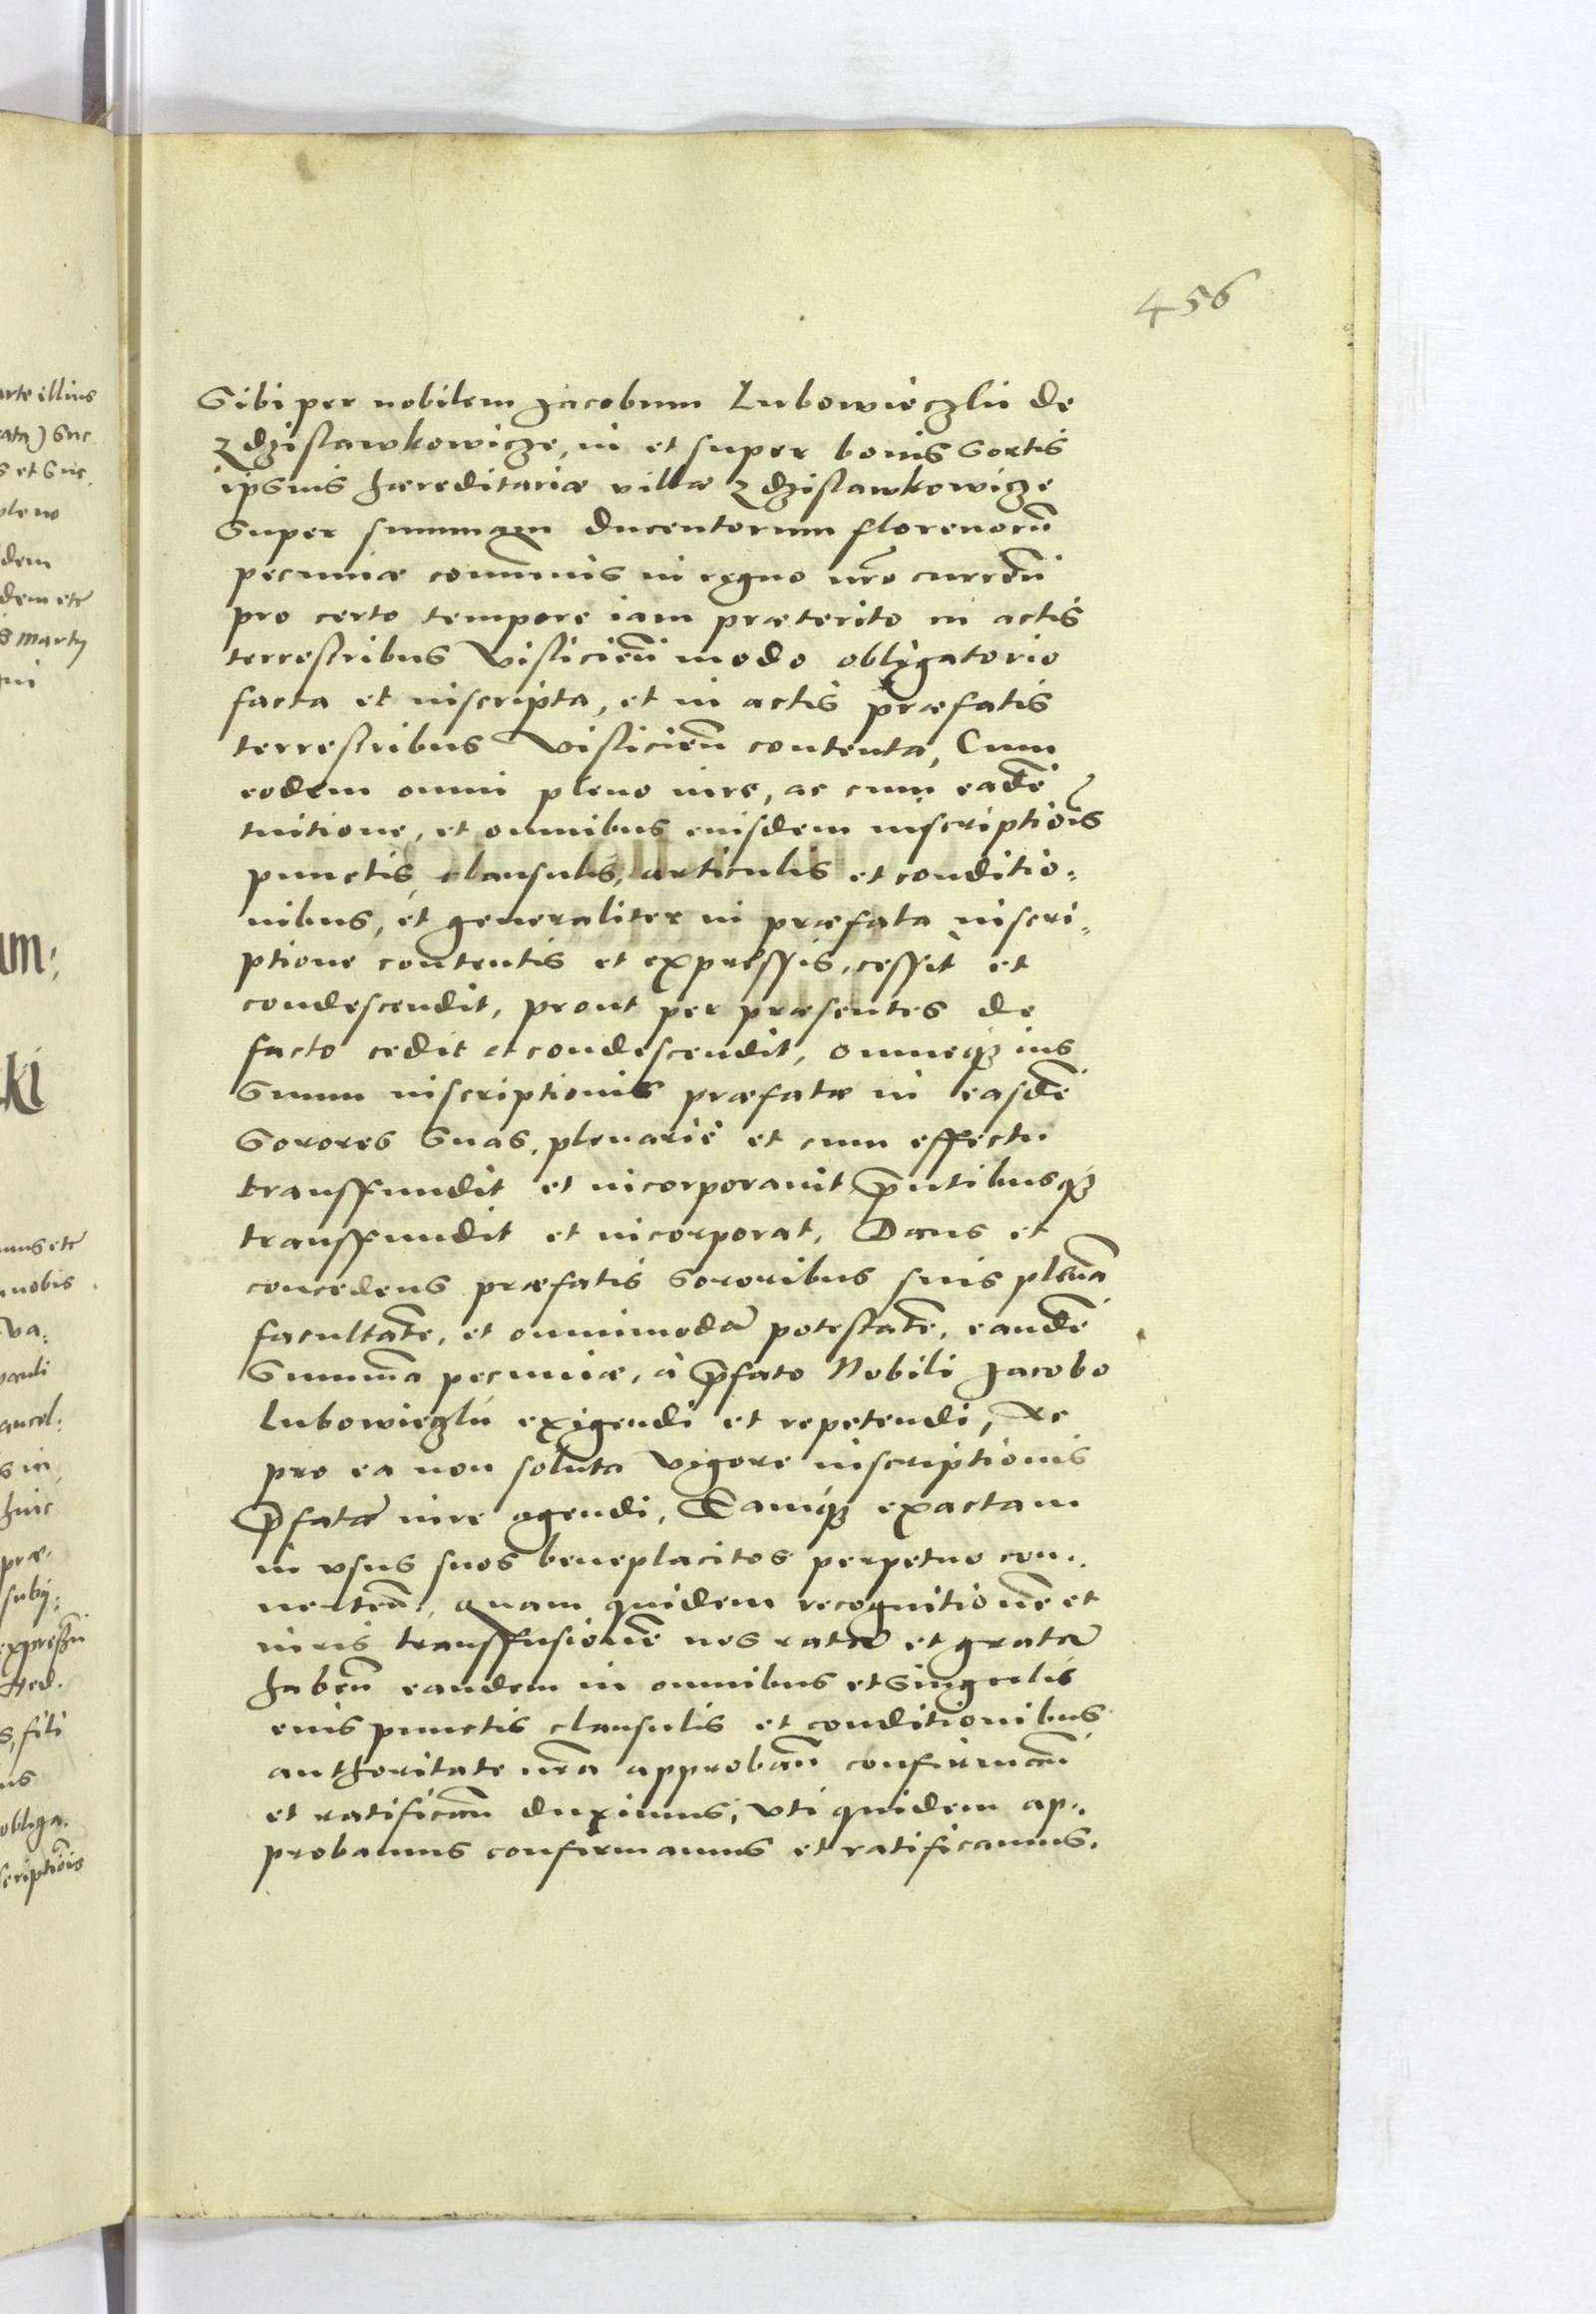 456
Sibi per nobilem Jacobum Lubowieczkii de
Zdzislawkowicze, in et super bonis Sortis
ipsius hæreditariæ villæ Zdzislawkowicze
Super summam ducentorum florenorū
pecuniæ commūnis in regno nr̄o currēn̄
pro certo tempore iam præterito in actis
terrestribus Visliciēn̄ modo obligatorio
facta et inscripta, et in actis præfatis
terrestribus Visliciēn̄ contenta, Cum
eodem omni pleno iure, ac cum eadē
tuitione, et omnibus eiusdem inscriptiōis
punctis, clausulis, articulis et conditio:
nibus, et generaliter in præfata inscri:
ptione contentis et expressis, cessit et
condescendit, prout per præsentes de
facto cedit et condescendit, omneqꝫ ius
Suum inscriptionis præfatæ in easdē
Sorores Suas, plenarie et cum effectu
transfundit et incorporauit p̄ntibusqꝫ
transfundit et incorporat, Dans et
concedens præfatis Sororibus suis plenā
facultatē, et omnimodā potestatē, eandē
Summā pecuniæ, à p̄fato Nobili Jacobo
Lubowieczkii exigendi et repetendi, Ac
pro ea non soluta vigore inscriptionis
p̄fatæ iure agendi, Eamqꝫ exactam
in vsus suos beneplacitos perpetuo con:
uerten̄:, quam quidem recognitionē et
iuris transfusionē nos ratā et gratā
haben̄ eandem in omnibus et Singulis
eius punctis clausulis et conditionibus
authoritate nr̄a approban̄ confirman̄
et ratifican̄ duximus, vti quidem ap:
probamus confirmamus et ratificamus.